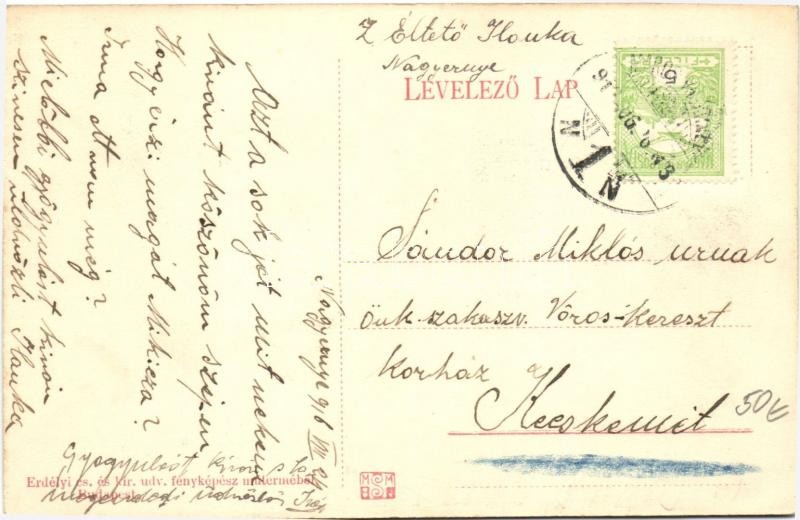 Z Éltető Ilonka
Nagyernye
LEVELEZŐ LAP
Sándor Miklós urnak
önk szakaszv. Vörös-kereszt
korház
Kecskemét
50€
Nagyernye 916 VIII
Azt a sok jót mit nekem
kivánt köszönöm szépen
Hogy érzi magát Mikicza?
Irma ott van még?
Mielőbbi gyógyulást kíván
szívesen üdvözli Ilonka
Gyógyulást kíván s
üdvözlés
Erdélyi cs. és kir. udv. fényképész műterméből
Budapest
M M